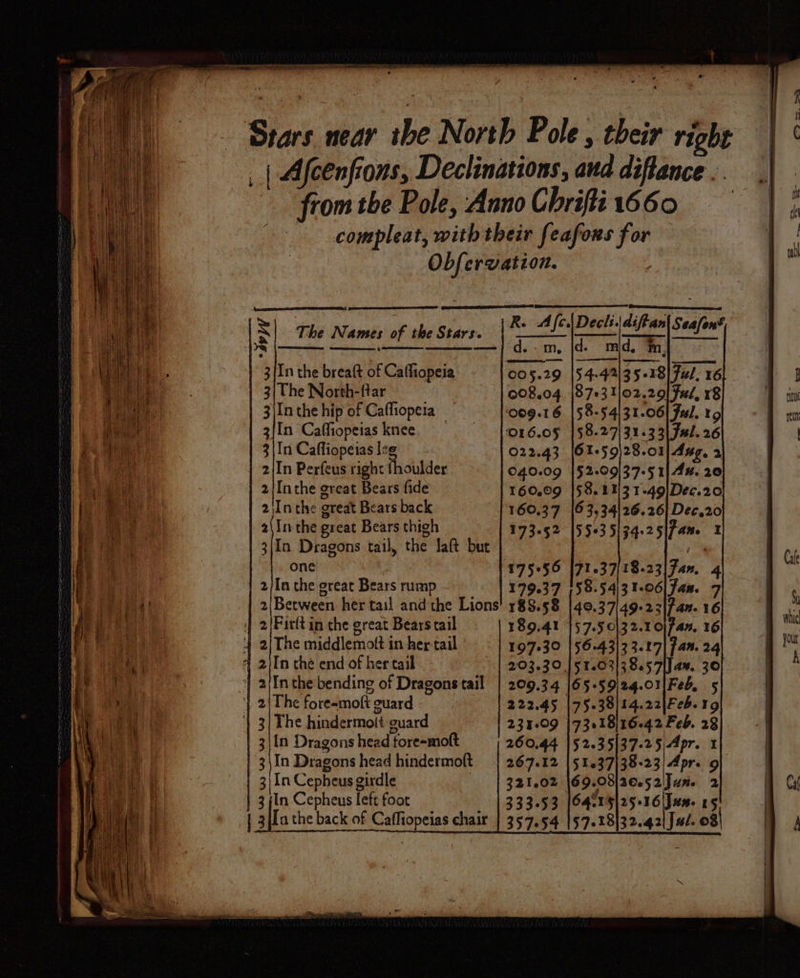 Stars near the North Pole, their right
Aſcenſions, Declinations, and diſtance
from the Pole, Anno Chriſti 1660
compleat, with their ſeaſons for
Obſervation.
The Names of the Stars. R. Aſc. Decli. diſtan Seaſons
d. m. d. m d. m.
3 In the breaſt of Caſſiopeia 005.29 54.42 35.18 Jul. 16
3 The North-ſtar 008.04 87.31 02.29 Jul. 18
3 In the hip of Caſſiopeia 009.16 58.54 31.06 Jul. 19
3 In Caſſiopeias knee 016.05 58.27 31.33 Jul. 26
3 In Caſſiopeias leg 022.43 61.59 28.01 Aug. 2
2 In Perſeus right ſhoulder 040.09 52.09 37.51 Au. 20
2 In the great Bears ſide 160.09 58.11 31.49 Dec. 20
2 In the great Bears back 160.37 63.34 26.26 Dec. 20
2 In the great Bears thigh 173.52 55.35 34.25 Jan. 1
3 In Dragons tail, the laſt but
one 175.56 71.37 18.23 Jan. 4
2 In the great Bears rump 179.37 58.54 31.06 Jan. 7
2 Between her tail and the Lions 188.58 40.37 49.23 Jan. 16
2 Firſt in the great Bears tail 189.41 57.50 32.10 Jan. 16
2 The middlemoſt in her tail 197.30 56.43 33.17 Jan. 24
2 In the end of her tail 203.30 51.03 38.57 Jan. 30
2 In the bending of Dragons tail 209.34 65.59 24.01 Feb. 5
2 The fore-moſt guard 222.45 75.38 14.22 Feb. 19
3 The hindermoſt guard 231.09 73.18 16.42 Feb. 28
3 In Dragons head fore-moſt 260.44 52.35 37.25 Apr. 1
3 In Dragons head hindermoſt 267.12 51.37 38.23 Apr. 9
3 In Cepheus girdle 321.02 69.08 20.52 Jun. 2
3 In Cepheus left foot 333.53 64.15 25.16 Jun. 15
3 In the back of Caſſiopeias chair 357.54 57.18 32.42 Jul. 08